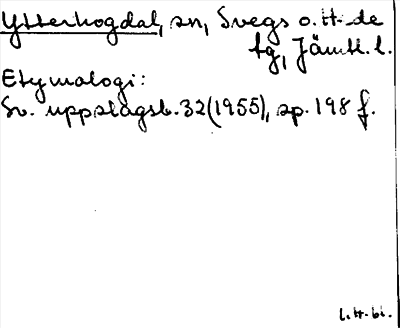 Ytterhogdal, sn, Svegs o. H-de
tg, Jämtl. l.
Etymologi:
Sv. uppslagsb. 32(1955), sp. 198 f.